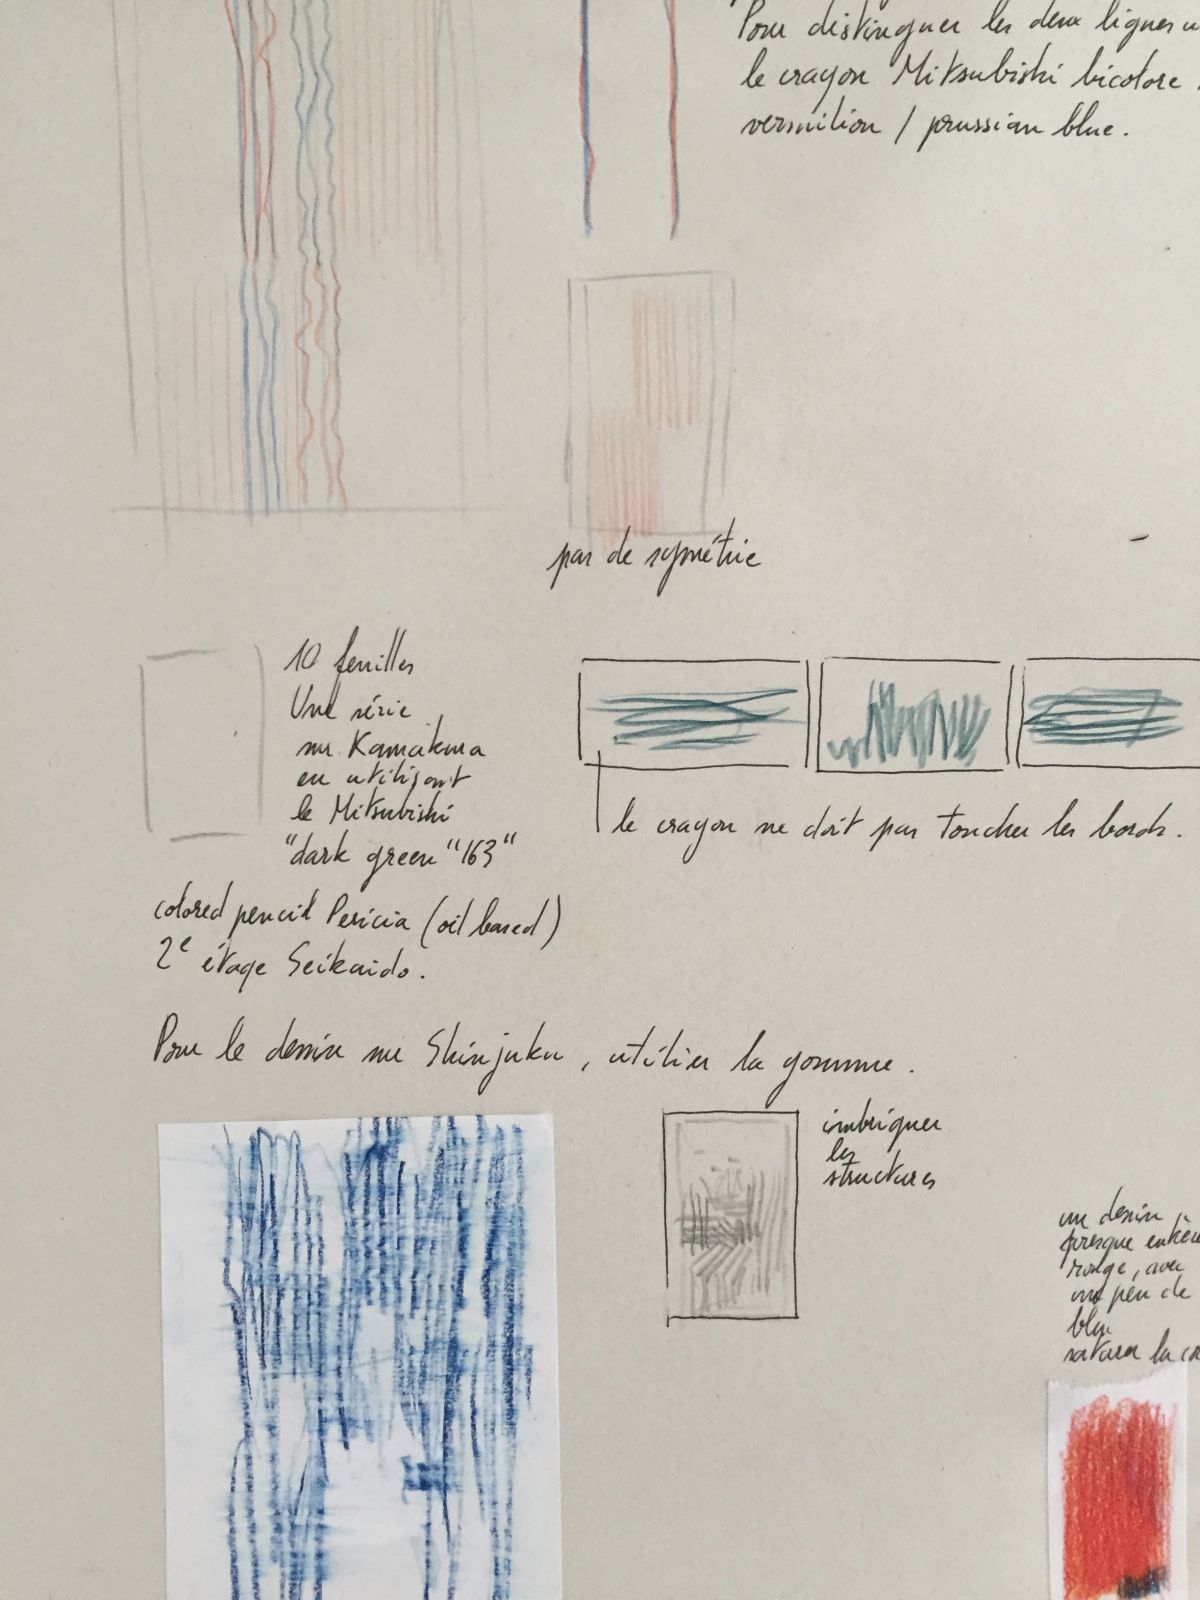 Pour distinguer les deux lignes
le crayon Mitsubishi bicolore
vermilion / prussian blue.
pas de symétrie
10 feuilles
Une série
sur Kamakura
en utilisant
le Mitsubishi
"dark green "163"
colored pencil Pericia (oil based)
2e étage Seikaido.
le crayon ne doit pas toucher les bords.
Pour le dessin sur Shinjuku, utiliser la gomme.
imbriquer
les
structures
un dessin
presque
rouge, avec
un peu de
bleu
saturer la